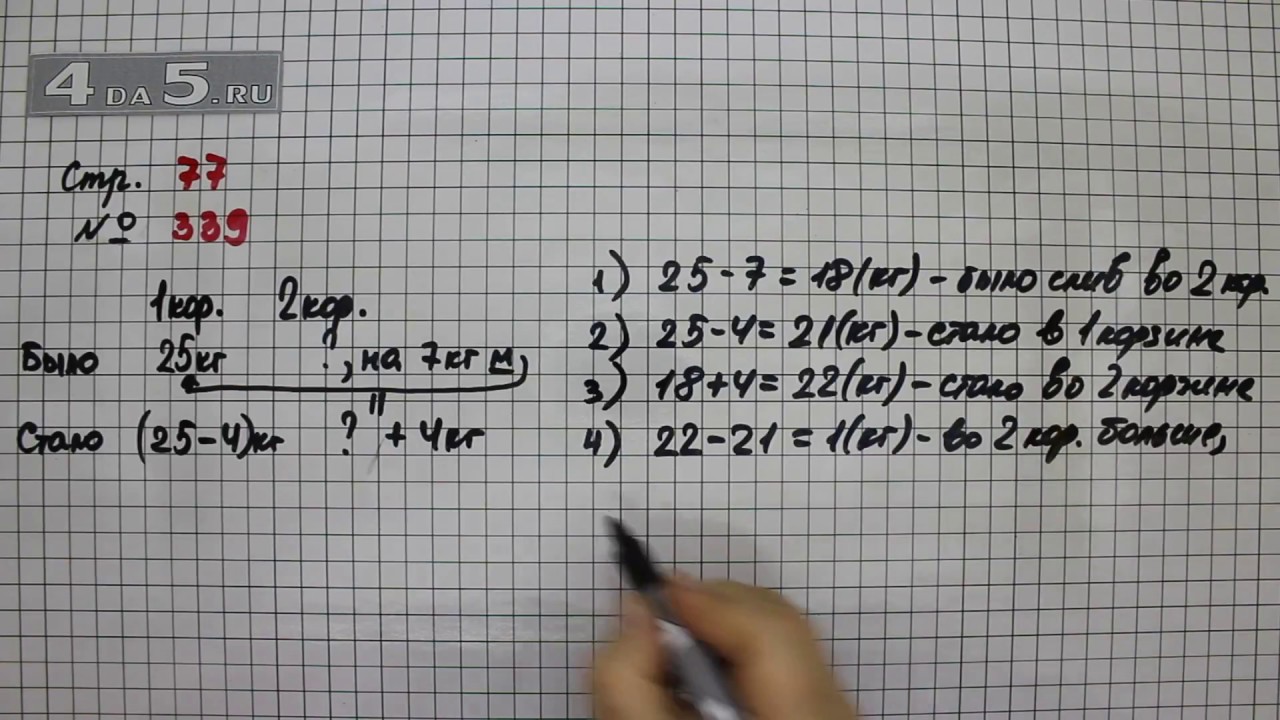 4 DA 5.RU
Стр. 77
№ 339
1 кор. 2 кор.
Было 25 кг ?, на 7 кг м,
Стало (25-4) кг ? + 4 кг
1) 25-7=18(кг) - было слив во 2 кор.
2) 25-4=21(кг) - стало в 1 корзине
3) 18+4=22(кг) - стало во 2 корзине
4) 22-21=1(кг) - во 2 кор. больше,